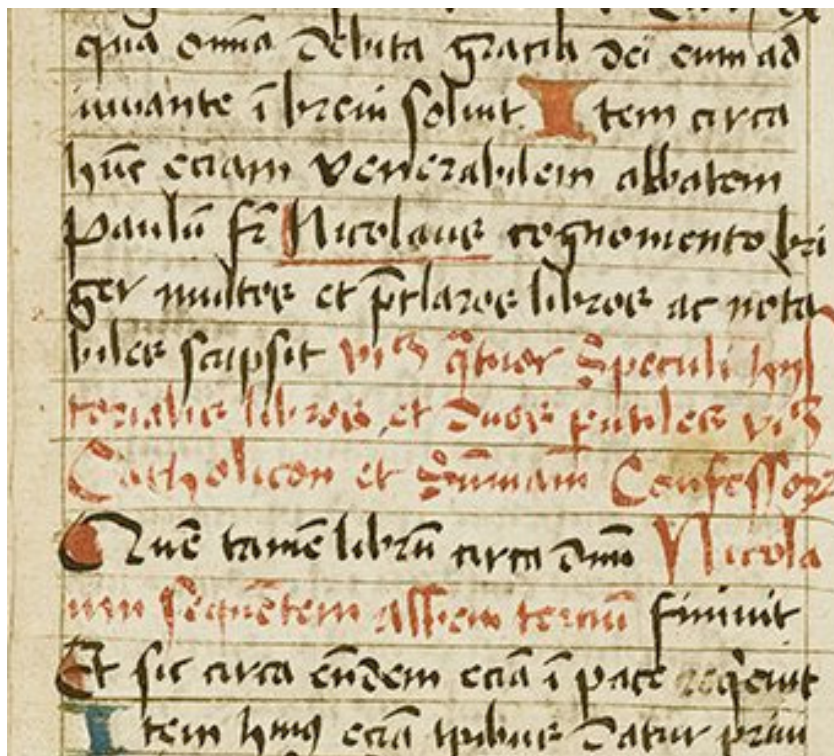 qua om̄ia debita gracia dei eum ad
iuvante ī brevi solvit Item circa
hūc eciam venerabilem abbatem
Paulū fr̄ Nicolaus cognomento kri
ger multos et p̄claros libros ac nota
biles scripsit quatuor Speculi hys
torialis libros et duos
Catholicon et Sūmam Confessor
Quē tamē librū circa dnm̄ Nicola
um sequētem abbem terciū finivit
Et sic circa eūdem eciā ī pace reqevit
Item hui9 eciā tpibus datur